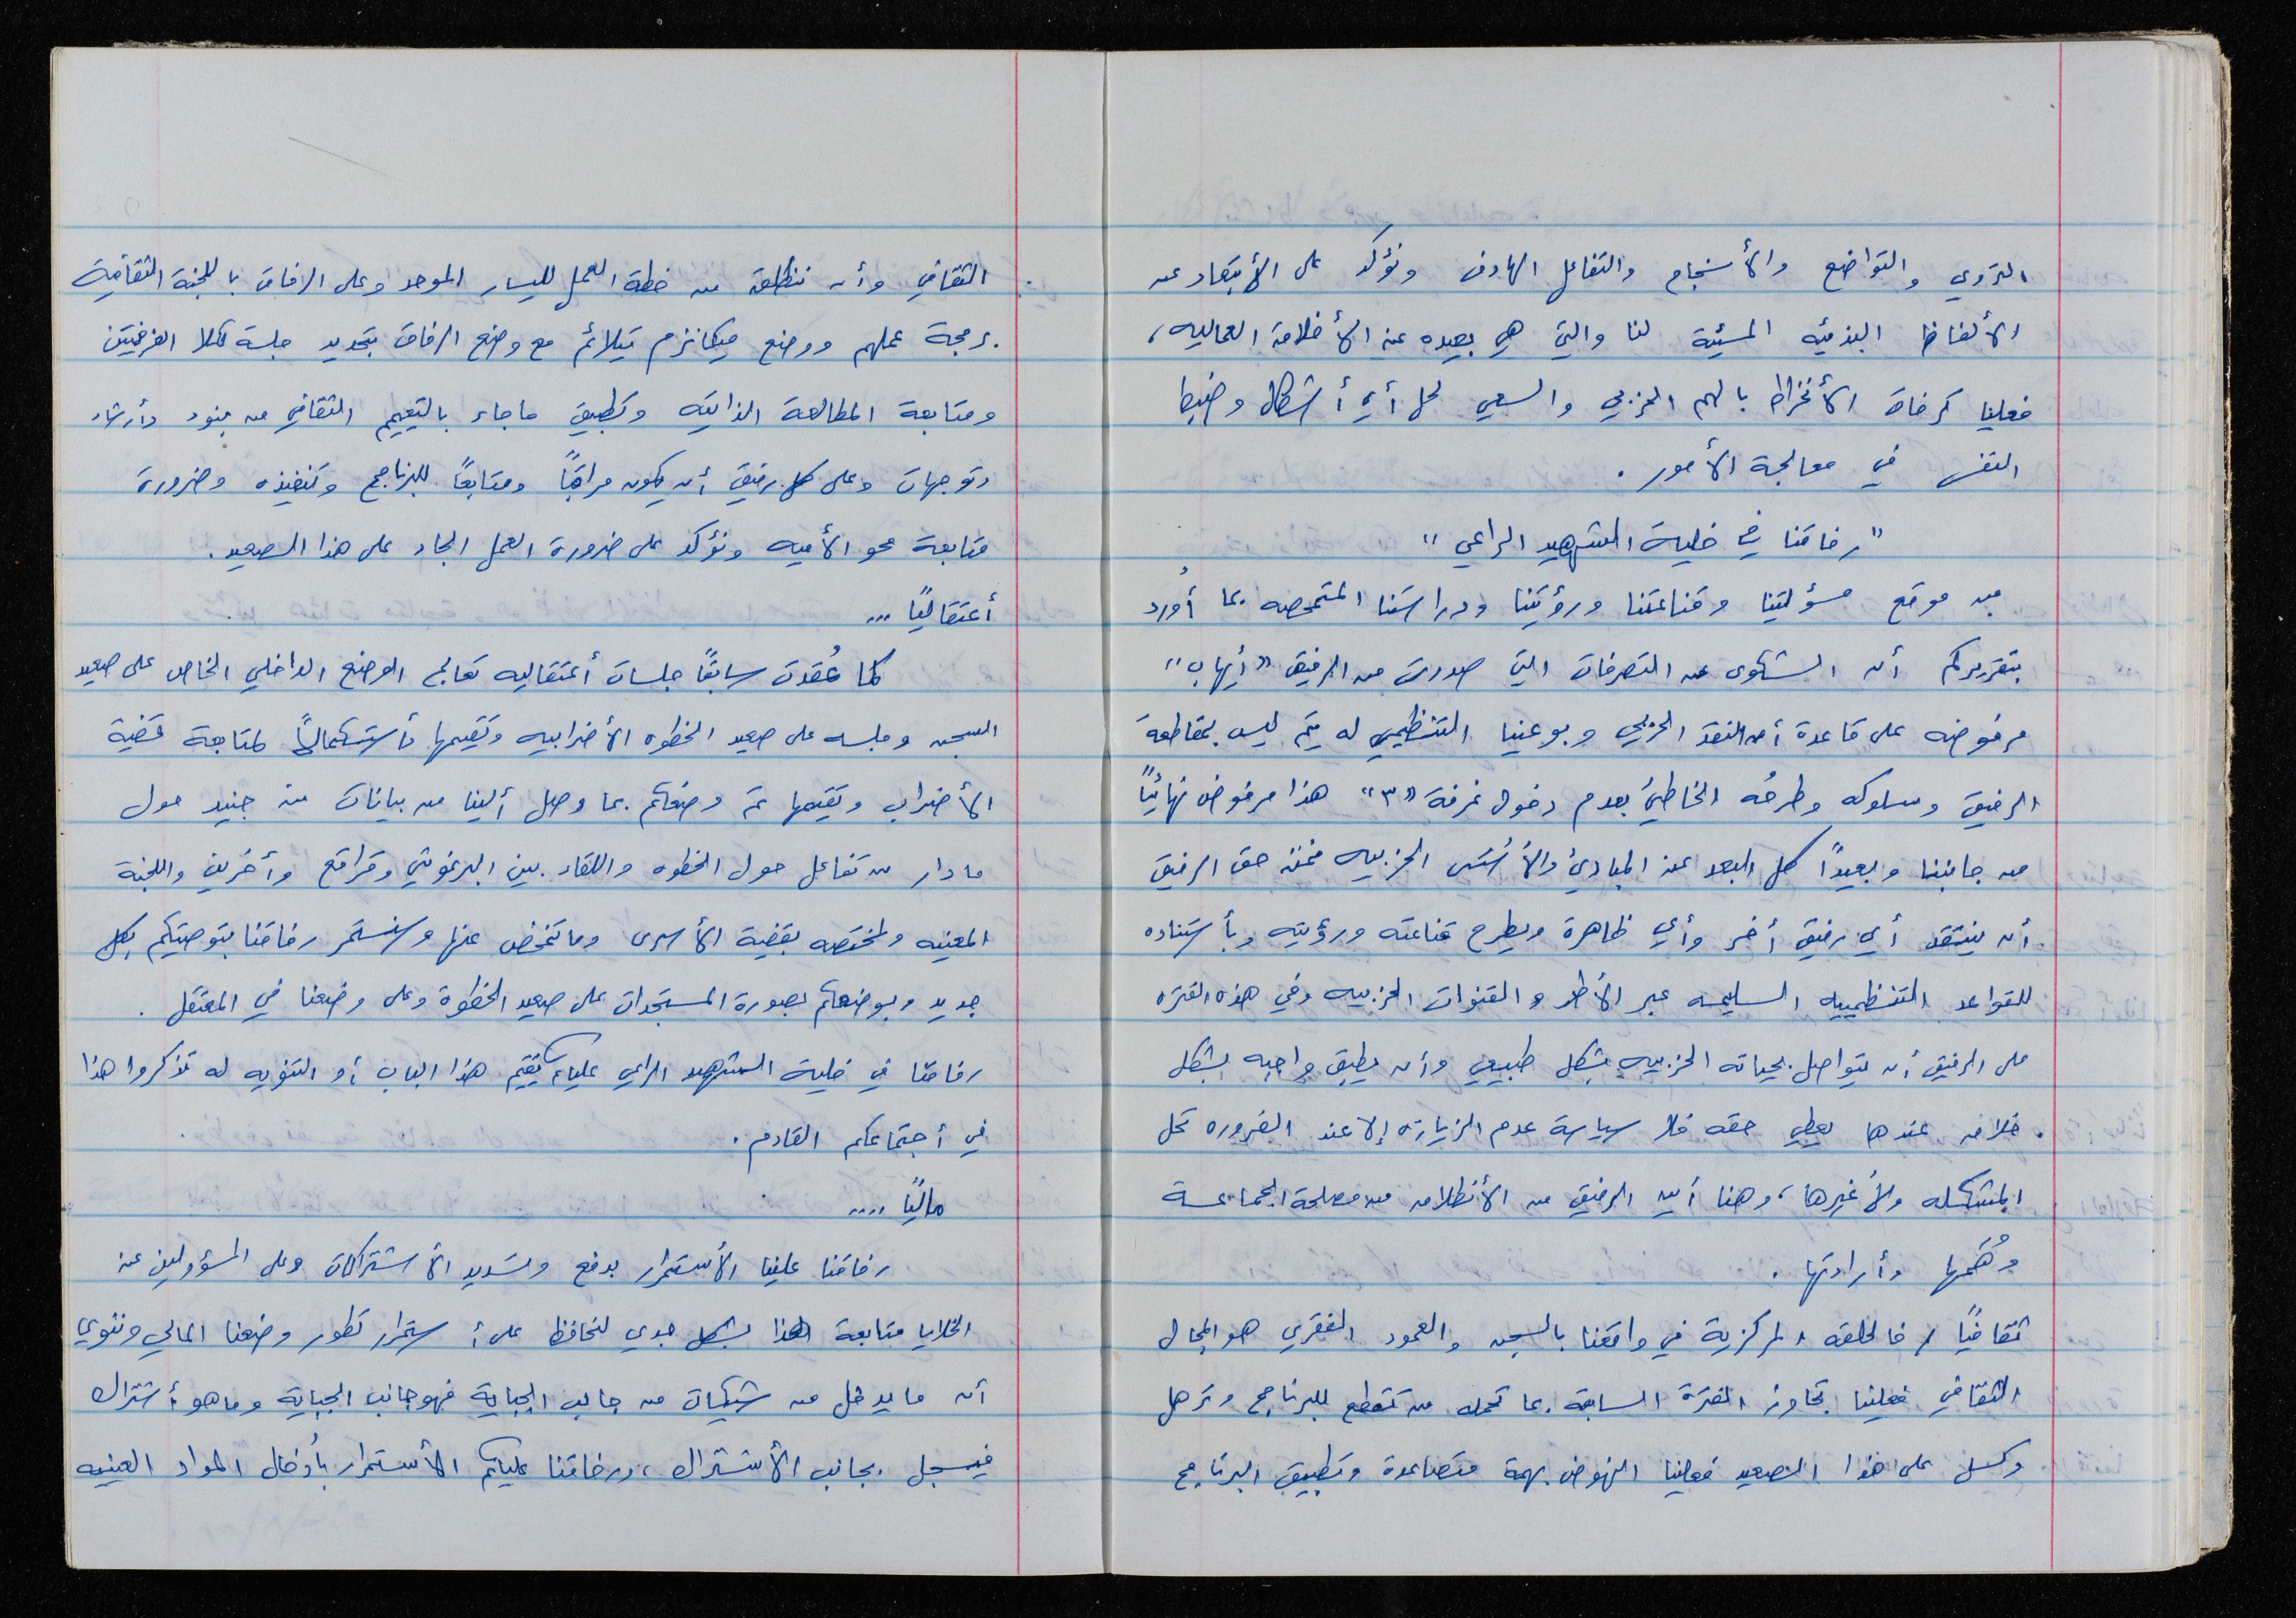 التروي والتواضع والأنسجام والتفاعل الهادف ونؤكد على الأبتعاد عن
الألفاظ البذيئه المسيئة لنا والتي هي بعيده عن الأخلاق العماليه،
فعلينا كرفاق الأنخراط بالهم الحزبي والسعي لحل أي أشكال وضبط
النفس في معالجة الأمور .
"رفاقنا في خلية الشهيد الراعي"
من موقع مسؤلتينا وقناعتنا ورؤيتنا ودراستنا المتمحصه بما أُورد
بتقريركم أن الشكوى عن التصرفات التي صدرت من الرفيق "أيهاب"
مرفوضه على قاعدة أن النقد الحزبي وبوعينا التنظيمي له يتم ليس بمقاطعة
الرفيق وسلوكه وطرحُه الخاطئ بعدم دخول غرفة "٣" هذا مرفوض نهائيًا
من جانبنا وبعيدًا كل البعد عن المبادئ والأُسُس الحزبيه فمن حق الرفيق
أن ينتقد أي رفيق أخر وأي ظاهرة ويطرح قناعته ورؤيته وبأستناده
للقواعد التنظيمييه السليمه عبر الأطر والقنوات الحزبيه وفي هذه الفتره
على الرفيق أن يتواصل بحياته الحزبيه بشكل طبيعي وأن يطبق واجبه بشكل
خلاق عندها يعطي حقه فلا سياسة عدم الزياره إلا عند الضروره تحل
المشكله ولا غيرها، وهنا أين الرفيق من الأنطلاق من مصلحة الجماعة
وهَمها وأرادتها .
ثقافيًا / فالحلقه المركزية في واقعنا بالسجن والعمود الفقري هو المجال
الثقافي فعلينا تجاوز الفترة السابقة بما تحمله من تقطع للبرنامج وترهل
وكسل على هذا الصعيد فعلينا النهوض بهمة متصاعدة وتطبيق البرنامج
الثقافي وأن ننطلق من خطة العمل لليسار الموحد وعلى الرفاق باللجنة الثقافية
برمجة عملهم ووضع ميكانزم يتلائم مع وضع الرفاق بتحديد جلسة لكلا الغرفتين
ومتابعة المطالعة الذاتيه وتطبيق ما جاء بالتعميم الثقافي من بنود وأرشاد
وتوجهات وعلى كل رفيق أن يكون مراقبًا ومتابعًا للبرنامج وتنفيذه وضرورة
متابعة محو الأميه ونؤكد على ضرورة العمل الجاد على هذا الصعيد.
أعتقاليًا ...
كما عُقدت سابقًا جلسات أعتقاليه تعالج الوضع الداخلي الخاص على صعيد
السجن وجلسه على صعيد الخطوه الأضرابيه وتقيمها وأستكمالًا لمتابعة قضية
الأضراب وتقيمها تم وضعكم بما وصل ألينا من بيانات من جنيد حول
ما دار من تفاعل حول الخطوه واللقاء بين البرغوثي وقراقع وأخرين واللجنة
المعنيه والمختصه بقضية الأسرى وما تمخض عنها وسنستمر رفاقنا بتوصيتكم بكل
جديد وبوضعكم بصورة المستجدات على صعيد الخطوة وعلى وضعنا في المعتقل .
رفاقنا في خلية الشهيد الراعي عليكم تقيم هذا الباب أو التنويه له تذكروا هذا
في أجتماعكم القادم .
ماليًا ....
رفاقنا علينا الأستمرار بدفع وتسديد الأشتراكات وعلى المسؤولين عن
الخلايا متابعة هذا بشكل جدي لنحافظ على أستمرار تطور وضعنا المالي وننوي
أن ما يدخل من شيكات من جانب الجباية فهو جانب الجباية وما هو أشتراك
فيسجل بجانب الأشتراك، ورفاقنا عليكم الأستمرار بأدخال المواد العينيه